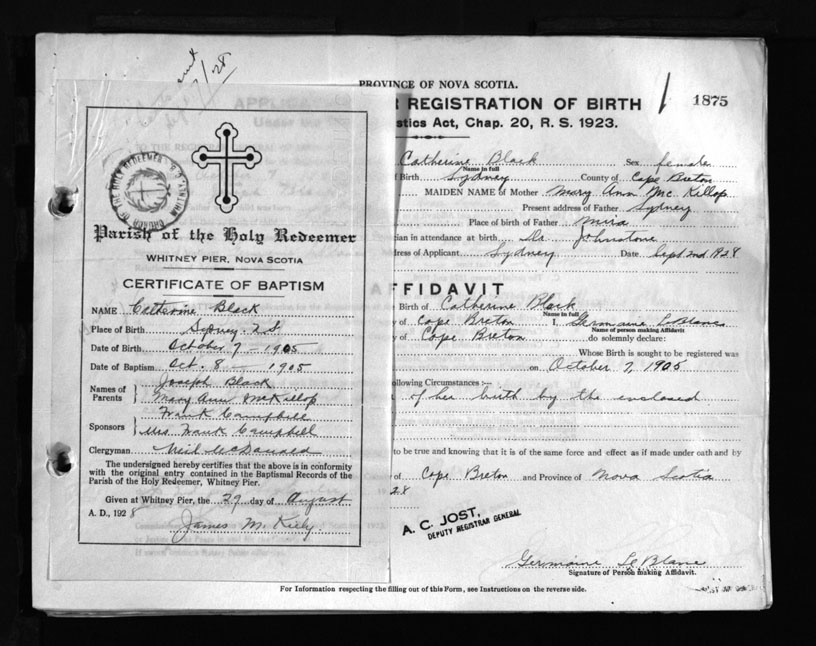 PROVINCE OF NOVA SCOTIA.
REGISTRATION OF BIRTH
1875
stics Act, Chap. 20, R. S. 1923.
Catherine Black Sex female
Name in full
f Birth Sydney County of Cape Breton
MAIDEN NAME of Mother Mary Ann McKillop
Present address of Father Sydney
Place of birth of Father Mira
cian in attendance at birth Dr Johnstone
dress of Applicant Sydney Date Sept 2nd 1928
FFIDAVIT
Birth of Catherine Black
Name in full
y of Cape Breton I, Germaine LeBlanc
Name of person making Affidavit
y of Cape Breton do solemnly declare:
Whose Birth is sought to be registered was
on October 7, 1905
ollowing Circumstances :—
of her birth by the enclosed
to be true and knowing that it is of the same force and effect as if made under oath and by
of Cape Breton and Province of Nova Scotia
28
A. C. JOST,
DEPUTY REGISTRAR GENERAL
Germaine LeBlanc
Signature of Person making Affidavit.
For Information respecting the filling out of this Form, see Instructions on the reverse side.
Parish of the Holy Redeemer
WHITNEY PIER, NOVA SCOTIA
CERTIFICATE OF BAPTISM
NAME Catherine Black
Place of Birth Sydney N.S
Date of Birth October 7 - 1905
Date of Baptism Oct. 8 - 1905
Names of Parents Joseph Black
Mary Ann McKillop
Sponsors Frank Campbell
Mrs Frank Campbell
Clergyman Neil McDonald
The undersigned hereby certifies that the above is in conformity
with the original entry contained in the Baptismal Records of the
Parish of the Holy Redeemer, Whitney Pier.
Given at Whitney Pier, the 29 day of August
A. D., 1928
James M. Kiely